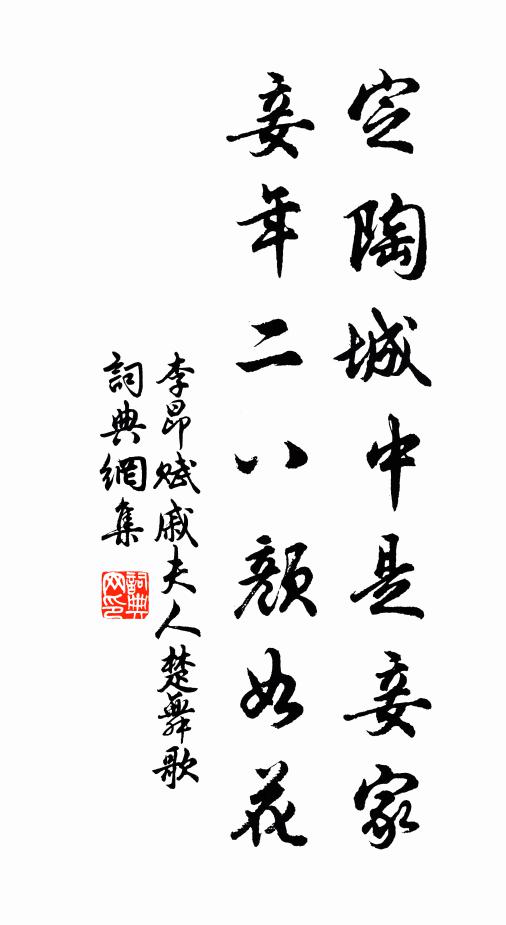 定陶城中是妾家
妾年二八顏如花
李昂賦戚夫人楚舞歌
詞典網集
詞典网印